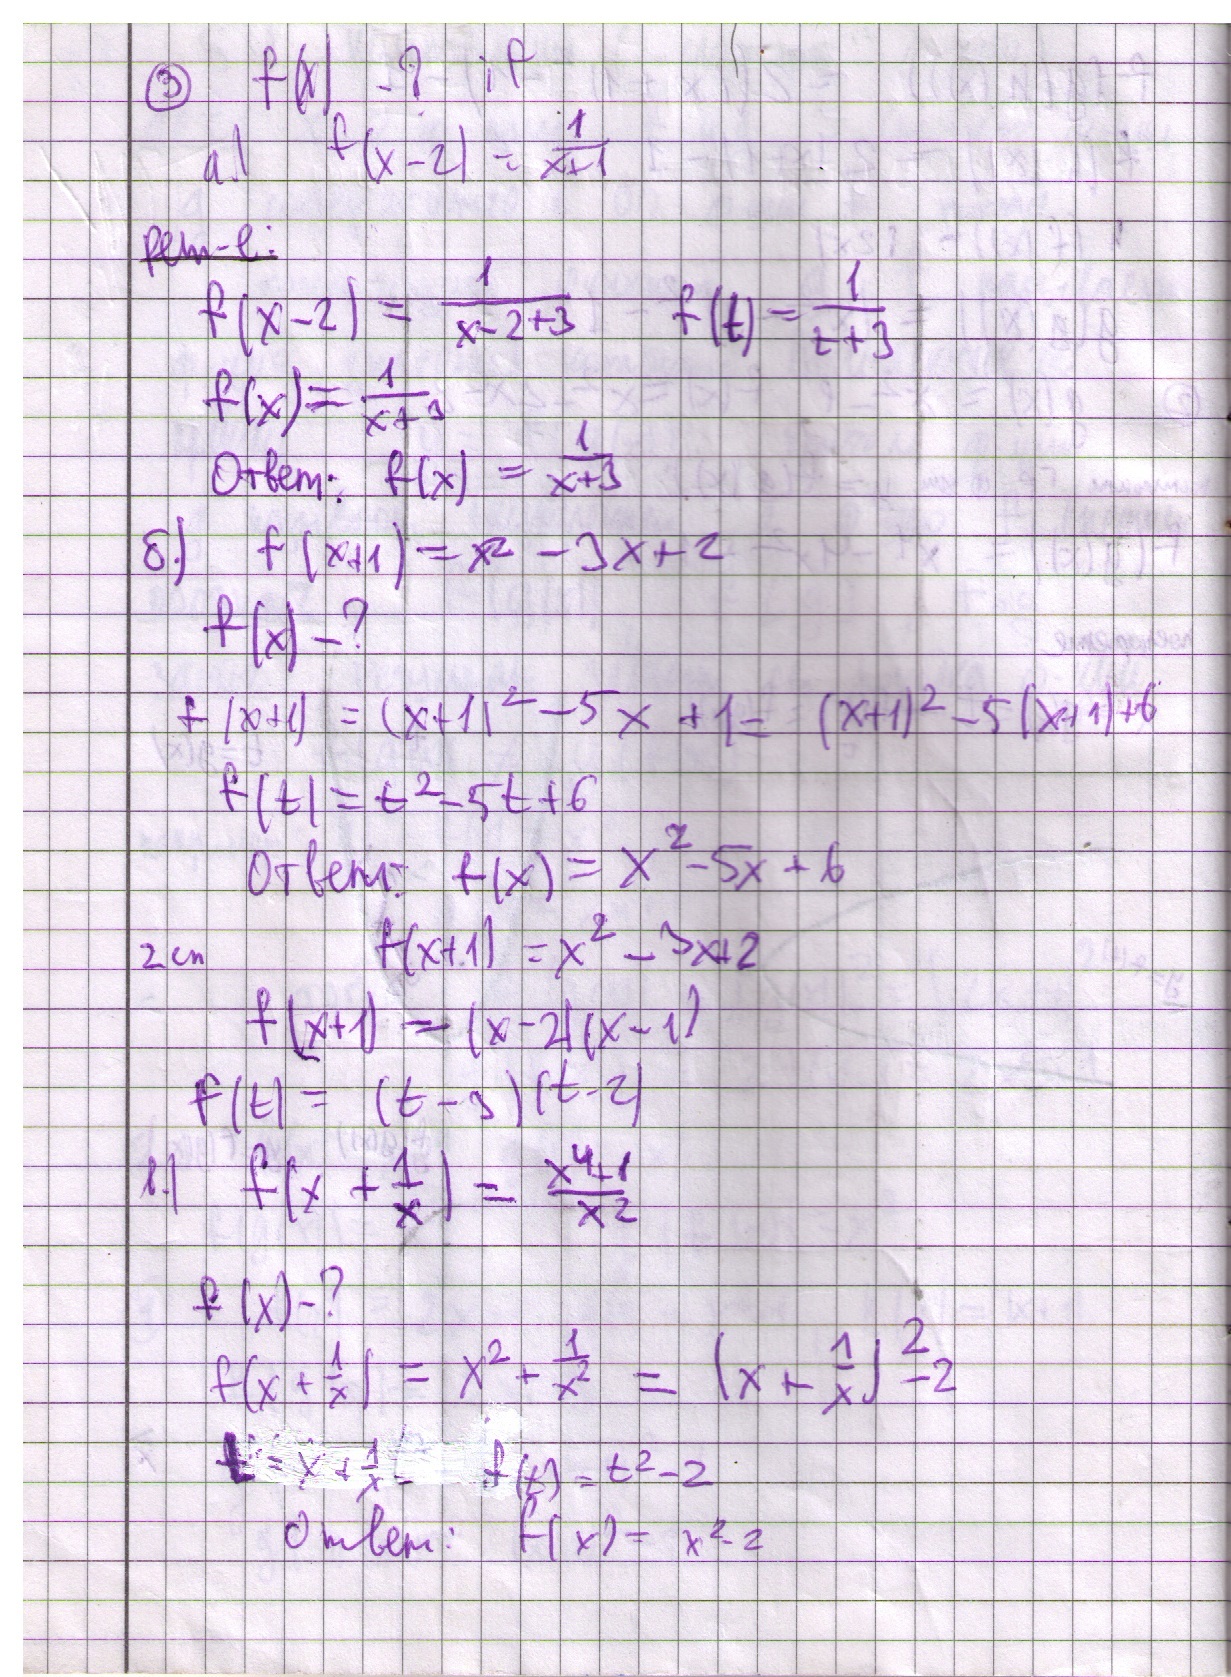 ③ f(x) - ? if
а.) f(x-2) = 1/(x+1)
реш-е:
f(x-2) = 1/(x-2+3) f(t) = 1/(t+3)
f(x) = 1/(x+3)
Ответ: f(x) = 1/(x+3)
б.) f(x+1) = x² - 3x + 2
f(x) - ?
f(x+1) = (x+1)² - 5x + 1 = (x+1)² - 5(x+1) + 6
f(t) = t² - 5t + 6
Ответ: f(x) = x² - 5x + 6
2 сп f(x+1) = x² - 3x + 2
f(x+1) = (x-2)(x-1)
f(t) = (t-3)(t-2)
в.) f(x + 1/x) = (x⁴+1)/x²
f(x) - ?
f(x + 1/x) = x² + 1/x² = (x + 1/x)² - 2
t = x + 1/x = f(t) = t² - 2
Ответ: f(x) = x² - 2